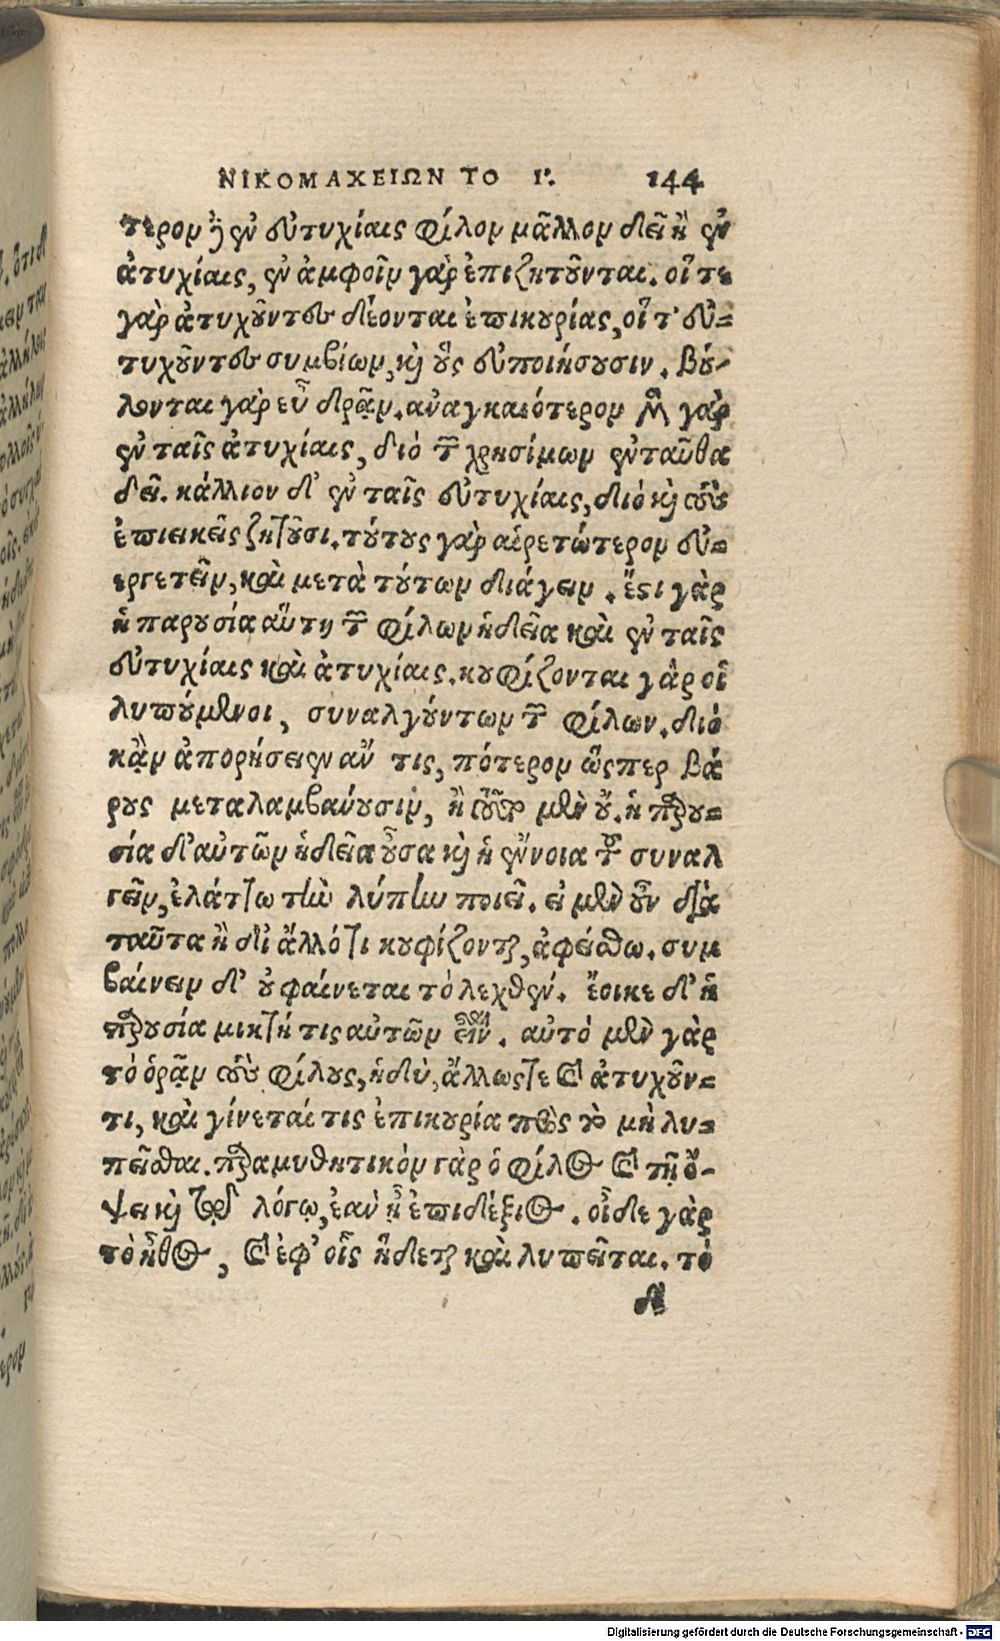 ΝΙΚΟΜΑΧΕΙΩΝ ΤΟ Ι'. 144
τερον δὲ ἐν εὐτυχίαις φίλον μᾶλλον δεῖ ἢ ἐν
ἀτυχίαις, ἐν ἀμφοῖν γὰρ ἐπιζητοῦνται. οἵ τε
γὰρ ἀτυχοῦντες δέονται ἐπικουρίας, οἵ τ' εὐ-
τυχοῦντες συμβίων, καὶ οὓς εὐποιήσουσιν. βού-
λονται γὰρ εὖ δρᾶν. ἀναγκαιότερον μὲν γὰρ
ἐν ταῖς ἀτυχίαις, διὸ τῶν χρησίμων ἐνταῦθα
δεῖ. κάλλιον δ' ἐν ταῖς εὐτυχίαις, διὸ καὶ τοὺς
ἐπιεικεῖς ζητοῦσι. τούτους γὰρ αἱρετώτερον εὐ-
εργετεῖν, καὶ μετὰ τούτων διάγειν. ἔστι γὰρ
ἡ παρουσία αὕτη τῶν φίλων ἡδεῖα καὶ ἐν ταῖς
εὐτυχίαις καὶ ἀτυχίαις. κουφίζονται γὰρ οἱ
λυπούμενοι, συναλγούντων τῶν φίλων. διὸ
κᾂν ἀπορήσειεν ἄν τις, πότερον ὥσπερ βά
ρους μεταλαμβάνουσιν, ἢ τοῦτο μὲν οὔ. ἡ παρου-
σία δ' αὐτῶν ἡδεῖα οὖσα καὶ ἡ ἔννοια τοῦ συναλ
γεῖν, ἐλάττω τὴν λύπην ποιεῖ. εἰ μὲν οὖν διὰ
ταῦτα ἢ δι' ἄλλό τι κουφίζονται, ἀφείσθω. συμ
βαίνειν δ' οὖ φαίνεται τὸ λεχθέν. ἔοικε δ' ἡ
παρουσία μικτή τις αὐτῶν εἶναι. αὐτὸ μὲν γὰρ
τὸ ὁρᾷν τοὺς φίλους, ἡδύ, ἄλλως τε καὶ ἀτυχοῦν-
τι, καὶ γίνεταί τις ἐπικουρία πρὸς τὸ μὴ λυ-
πεῖσθαι. παραμυθητικὸν γὰρ ὁ φίλος καὶ τῇ ὄ-
ψει καὶ τῷ λόγῳ, ἐὰν ᾖ ἐπιδέξιος. οἶδε γὰρ
τὸ ἦθος, καὶ ἐφ' οἷς ἥδεται καὶ λυπεῖται. τὸ
δὲ